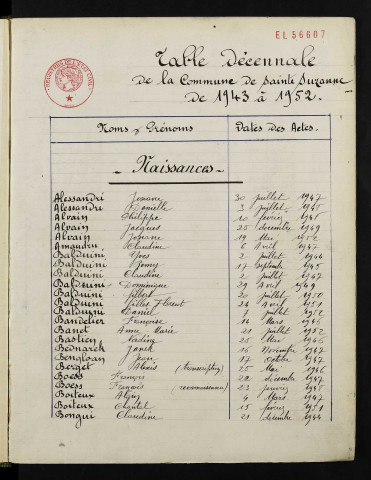 EL 56607
Table Décennale
de la Commune de Sainte Suzanne
de 1943 à 1952.
Noms & Prénoms Dates des Actes.
Naissances
Alessandri Josiane 30 juillet 1947
Alessandri Danielle 3 juillet
Alvain Philippe 10 février 1946
Alvain Jacques 25 décembre 1949
Alvain 19 Mai
Amaudru Claudine 6 avril 1947
Balduini Yves 2 juillet 1944
Balduini 17 septembre 1945
Balduini Claudine 2 juillet 1947
Balduini Dominique 29 Avril 1949
Balduini Gilbert 20 juillet 1950
Balduini Gilles Florent 24 Avril 1951
Balduini Daniel 7 juillet 1952
Bandelier Françoise 14 Mars 1946
Banet Anne Marie juillet 1952
Bastien Nadine 25 Mai 1946
Bednarek 16 Novembre 1947
Bengloan Jean 17 Octobre 1947
Berget Alexis (transcription) 25 Mai 1946
Boess François 22 décembre 1947
Boess François (reconnaissance) 23 janvier
Boiteux 4 Mars 1947
Boiteux Chantal 15 février 1951
Bongui Claudine 21 décembre 1944